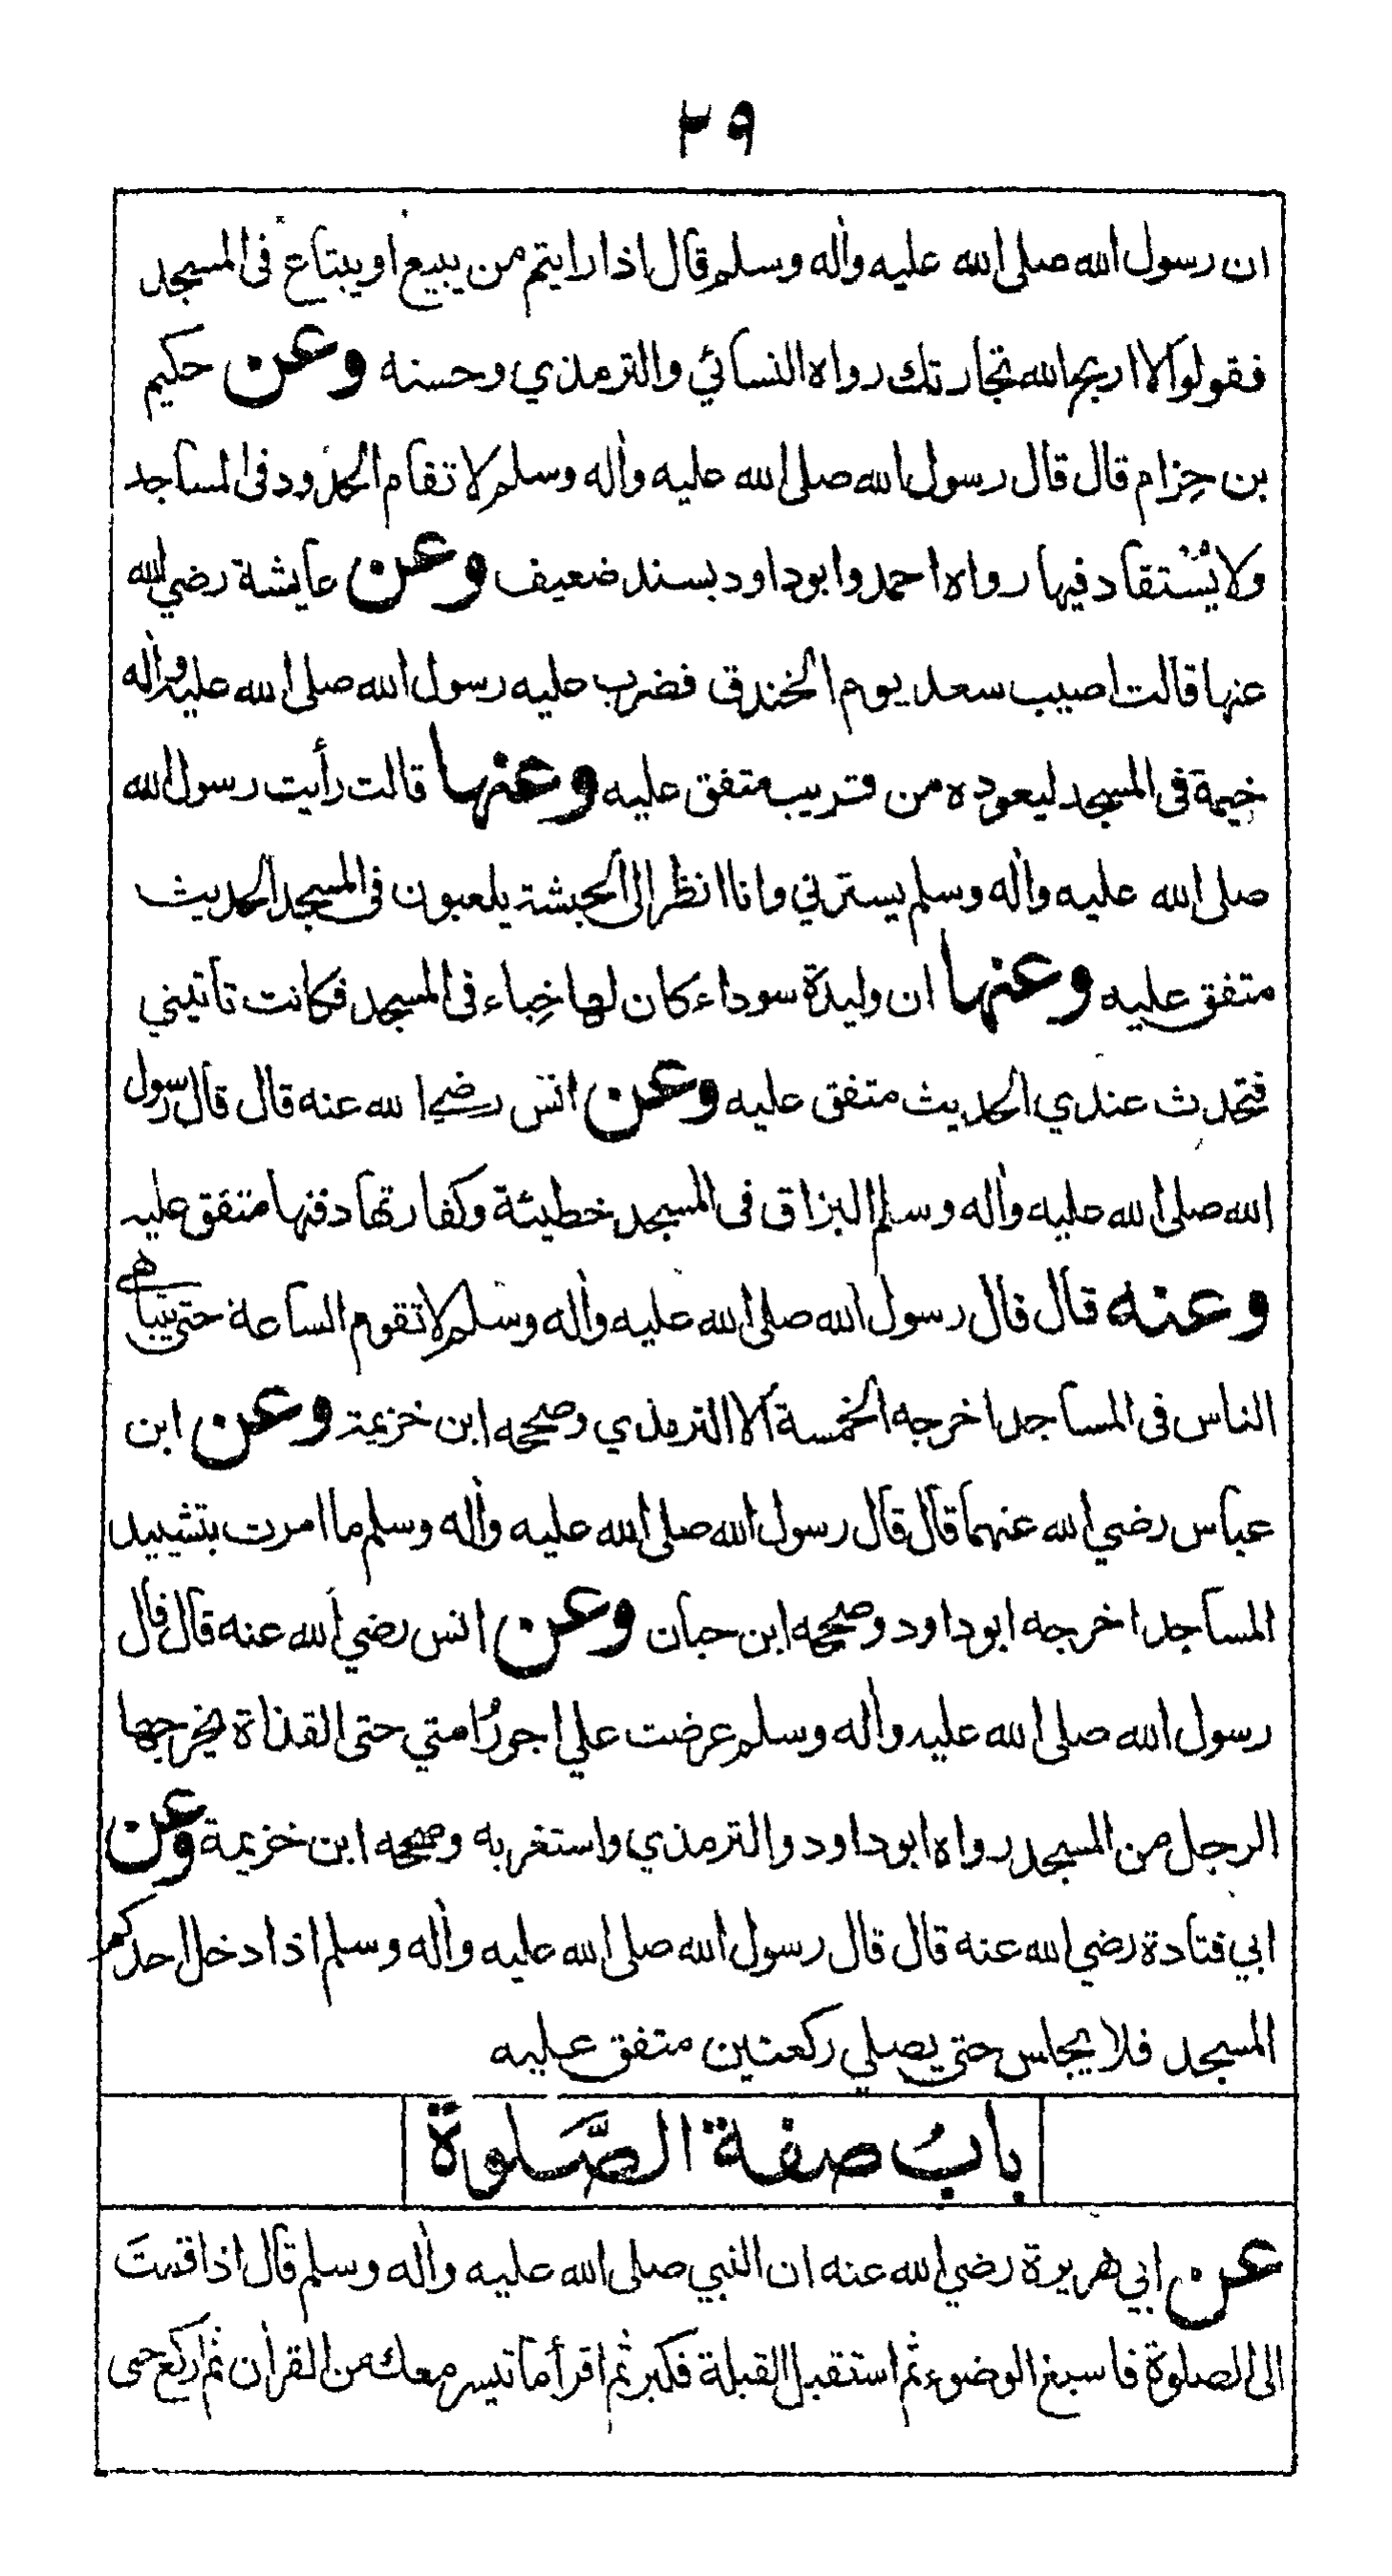 ٢٩
ان رسول الله صلى الله عليه واٰله وسلم قال اذا رايتم من يبيع او يبتاع فى المسجد
فقولوا لا اربح الله تجارتك رواه النسائي والترمذي وحسنه وعن حكيم
بن حِزام قال قال رسول الله صلى الله عليه واٰله وسلم لا تقام الحدود فى المساجد
ولا يُسْتقاد فيها رواه احمد وابو داود بسند ضعيف وعن عايشة رضي الله
عنها قالت اصيب سعد يوم الخندق فضرب عليه رسول الله صلى الله عليه واٰله
خيمة فى المسجد ليعوده من قريب متفق عليه وعنها قالت رأيت رسول الله
صلى الله عليه واٰله وسلم يسترني وانا انظر الى الحبشة يلعبون فى المسجد الحديث
متفق عليه وعنها ان وليدة سوداء كان لها خِباء فى المسجد فكانت تاتيني
فتحدث عندي الحديث متفق عليه وعن انس رضي الله عنه قال قال رسول
الله صلى الله عليه واٰله وسلم البزاق فى المسجد خطيئة وكفارتها دفنها متفق عليه
وعنه قال قال رسول الله صلى الله عليه واٰله وسلم لا تقوم الساعة حتى يتباهى
الناس فى المساجد اخرجه الخمسة الا الترمذي وصححه ابن خزيمة وعن ابن
عباس رضي الله عنهما قال قال رسول الله صلى الله عليه واٰله وسلم ما امرت بتشييد
المساجد اخرجه ابو داود وصححه ابن حبان وعن انس رضي الله عنه قال قال
رسول الله صلى الله عليه واٰله وسلم عرضت علي اجورُ امتي حتى القذاة يخرجها
الرجل من المسجد رواه ابو داود والترمذي واستغربه وصححه ابن خزيمة وعن
ابي قتادة رضي الله عنه قال قال رسول الله صلى الله عليه واٰله وسلم اذا دخل احدكم
المسجد فلا يجلس حتى يصلي ركعتين متفق عليه
بابُ صفة الصَّلوة
عن ابي هريرة رضي الله عنه ان النبي صلى الله عليه واٰله وسلم قال اذا قمتَ
الى الصلوة فاسبغ الوضوء ثم استقبل القبلة فكبر ثم اقرأ ما تيسر معك من القراٰن ثم اركع حتى